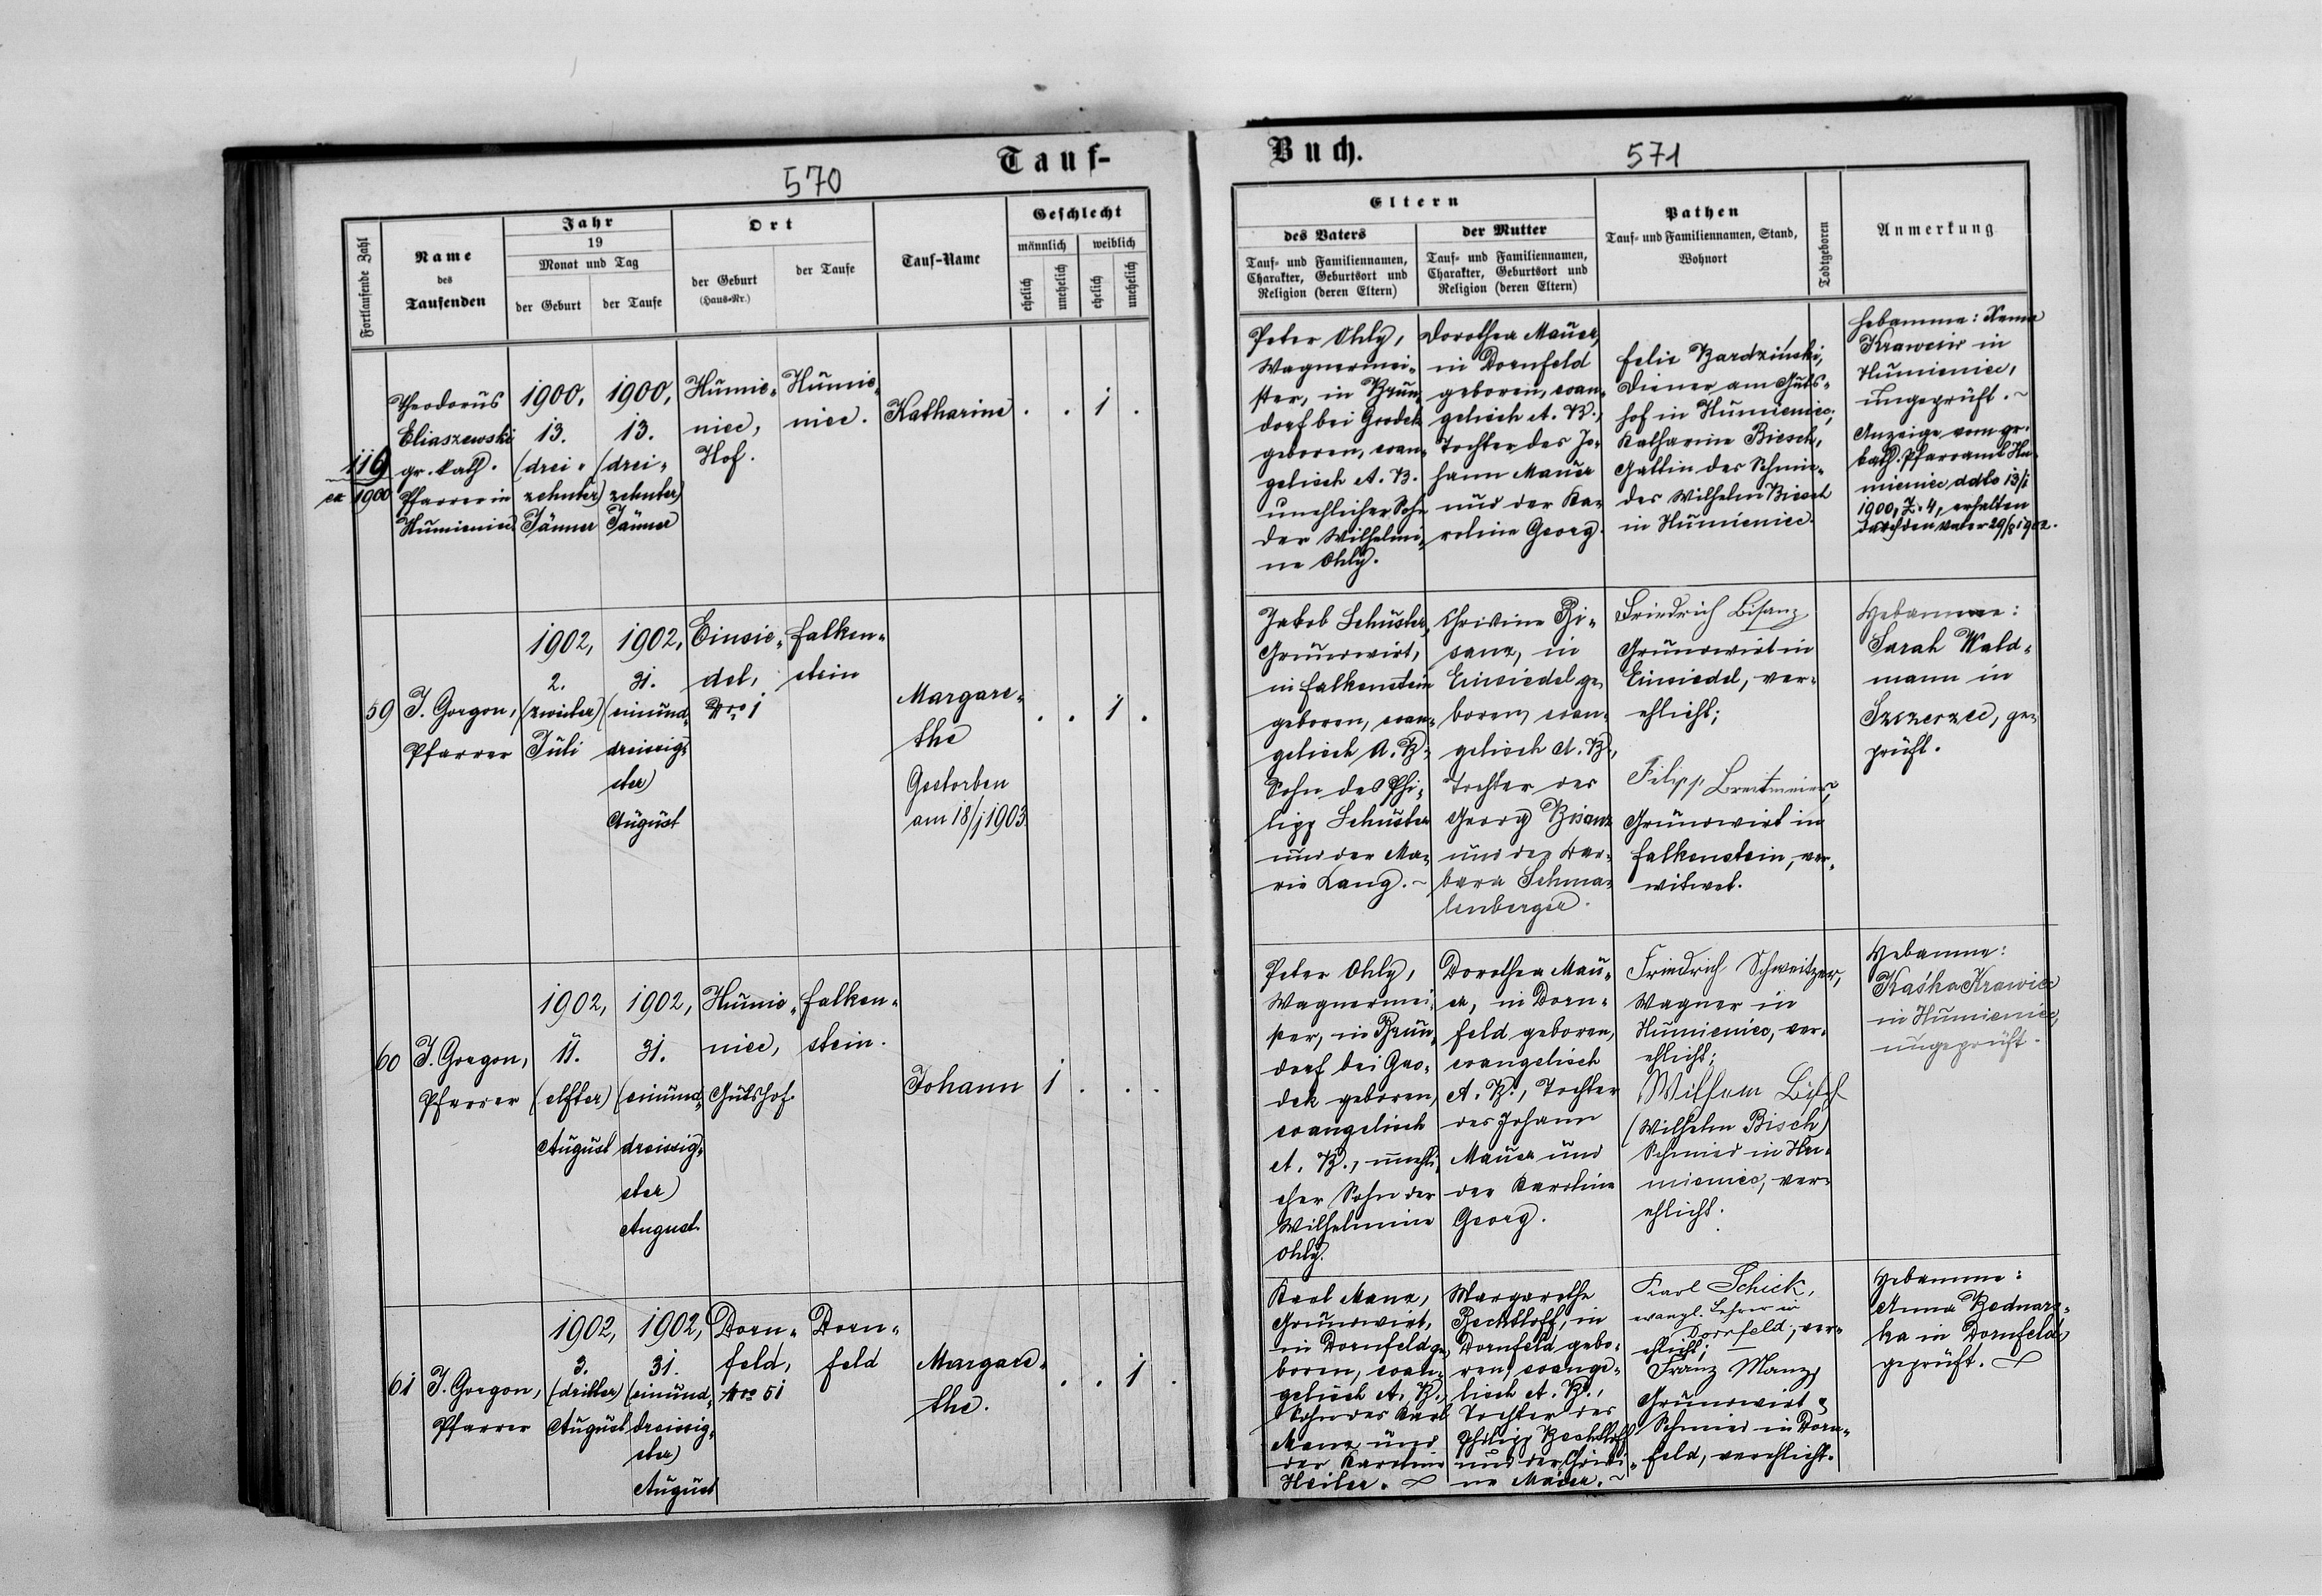 Tauf-
570
Fortlaufende Zahl
Name
des
Taufenden
Jahr
19
Monat und Tag
der Geburt
der Taufe
Ort
der Geburt
(Haus-Nr.)
der Taufe
Tauf-Name
Geschlecht
männlich
weiblich
ehelich
unehelich
ehelich
unehelich
119
ex 1900
Theodorus
Eliaszewski
gr. kath.
Pfarrer in
Humieniec
1900,
13.
(drei-
zehnter)
Jänner
1900,
13.
(drei-
zehnter)
Jänner
Humie-
niec,
Hof.
Humie-
niec.
Katharine
. . 1 .
59
J. Gorgon,
Pfarrer
1902,
2.
(zweiter)
Juli
1902,
31.
(einund-
dreissig-
ster)
August
Einsie-
del,
Nro 1
Falken-
stein
Margare-
the
Gestorben
am 18/1 1903.
. . 1 .
60
J. Gorgon,
Pfarrer
1902,
11.
(elfter)
August
1902,
31.
(einund-
dreissig-
ster)
August.
Humie-
niec,
Gutshof.
Falken-
stein.
Johann
1 . . .
61
J. Gorgon,
Pfarrer
1902,
3.
(dritter)
August
1902,
31.
(einund-
dreissig-
ster)
August
Dorn-
feld,
Nro 51
Dorn-
feld
Margare-
the.
. . 1 .
Buch.
571
Eltern
des Vaters
Tauf- und Familiennamen,
Charakter, Geburtsort und
Religion (deren Eltern)
der Mutter
Tauf- und Familiennamen,
Charakter, Geburtsort und
Religion (deren Eltern)
Pathen
Tauf- und Familiennamen, Stand,
Wohnort
Todtgeboren
Anmerkung
Peter Ohly,
Wagnermei-
ster, in Brun-
dorf bei Grodek
geboren, evan-
gelisch A. B.
unehlicher Sohn
der Wilhelmi-
ne Ohly.
Dorothea Mauer,
in Dornfeld
geboren, evan-
gelisch A. B.,
Tochter des Jo-
hann Mauer
und der Ka-
roline Georg.
Felix Bardziński,
Diener am Guts-
hof in Humieniec;
Katharine Biesch,
Gattin des Schmie-
des Wilhelm Biesch
in Humieniec.
Hebamme:
Krawciw in
Humieniec,
ungeprüft. ~
Anzeige vom gr.
kath. Pfarramt Hu-
mieniec ddto 13/1
1900, Z. 4, erhalten
durch den Vater 29/8 1902.
Jakob Schuster,
Grundwirt,
in Falkenstein
geboren, evan-
gelisch A. B.,
Sohn des Phi-
lipp Schuster
und der Ma-
rie Lang. ~
Christine Bi-
sanz, in
Einsiedel ge-
boren, evan-
gelisch A. B.,
Tochter des
Georg Bisanz
und der Bar-
bara Schma-
lenberger.
Friedrich Bisanz,
Grundwirt in
Einsiedel, ver-
ehlicht;
Filipp Breitmeier,
Grundwirt in
Falkenstein, ver-
witwet.
Hebamme:
Sarah Wald-
mann in
Szczerzec, ge-
prüft.
Peter Ohly,
Wagnermei-
ster, in Brun-
dorf bei Gro-
dek geboren,
evangelisch
A. B., unehli-
cher Sohn der
Wilhelmine
Ohly.
Dorothea Mau-
er, in Dorn-
feld geboren,
evangelisch
A. B., Tochter
des Johann
Mauer und
der Karoline
Georg.
Friedrich Schweitzer,
Wagner in
Humieniec, ver-
ehlicht;
Wilhelm
(Wilhelm Bisch)
Schmied in Hu-
mieniec, ver-
ehlicht.
Hebamme:
Kaśka Krawiec
in Humieniec,
ungeprüft.
Karl Manz,
Grundwirt,
in Dornfeld ge-
boren, evan-
gelisch A. B.,
Sohn des Karl
Manz und
der Karoline
Heiler.
Margarethe
Bechtloff, in
Dornfeld gebo-
ren, evange-
lisch A. B.,
Tochter des
Philipp Bechtloff
und der Christi-
ne Mauer. ~
Karl Schick,
evangl. Lehrer in
Dornfeld, ver-
ehlicht;
Franz Manz,
Grundwirt &
Schmied in Dorn-
feld, verehlicht.
Hebamme:
Anna Bednars-
ka in Dornfeld,
geprüft.